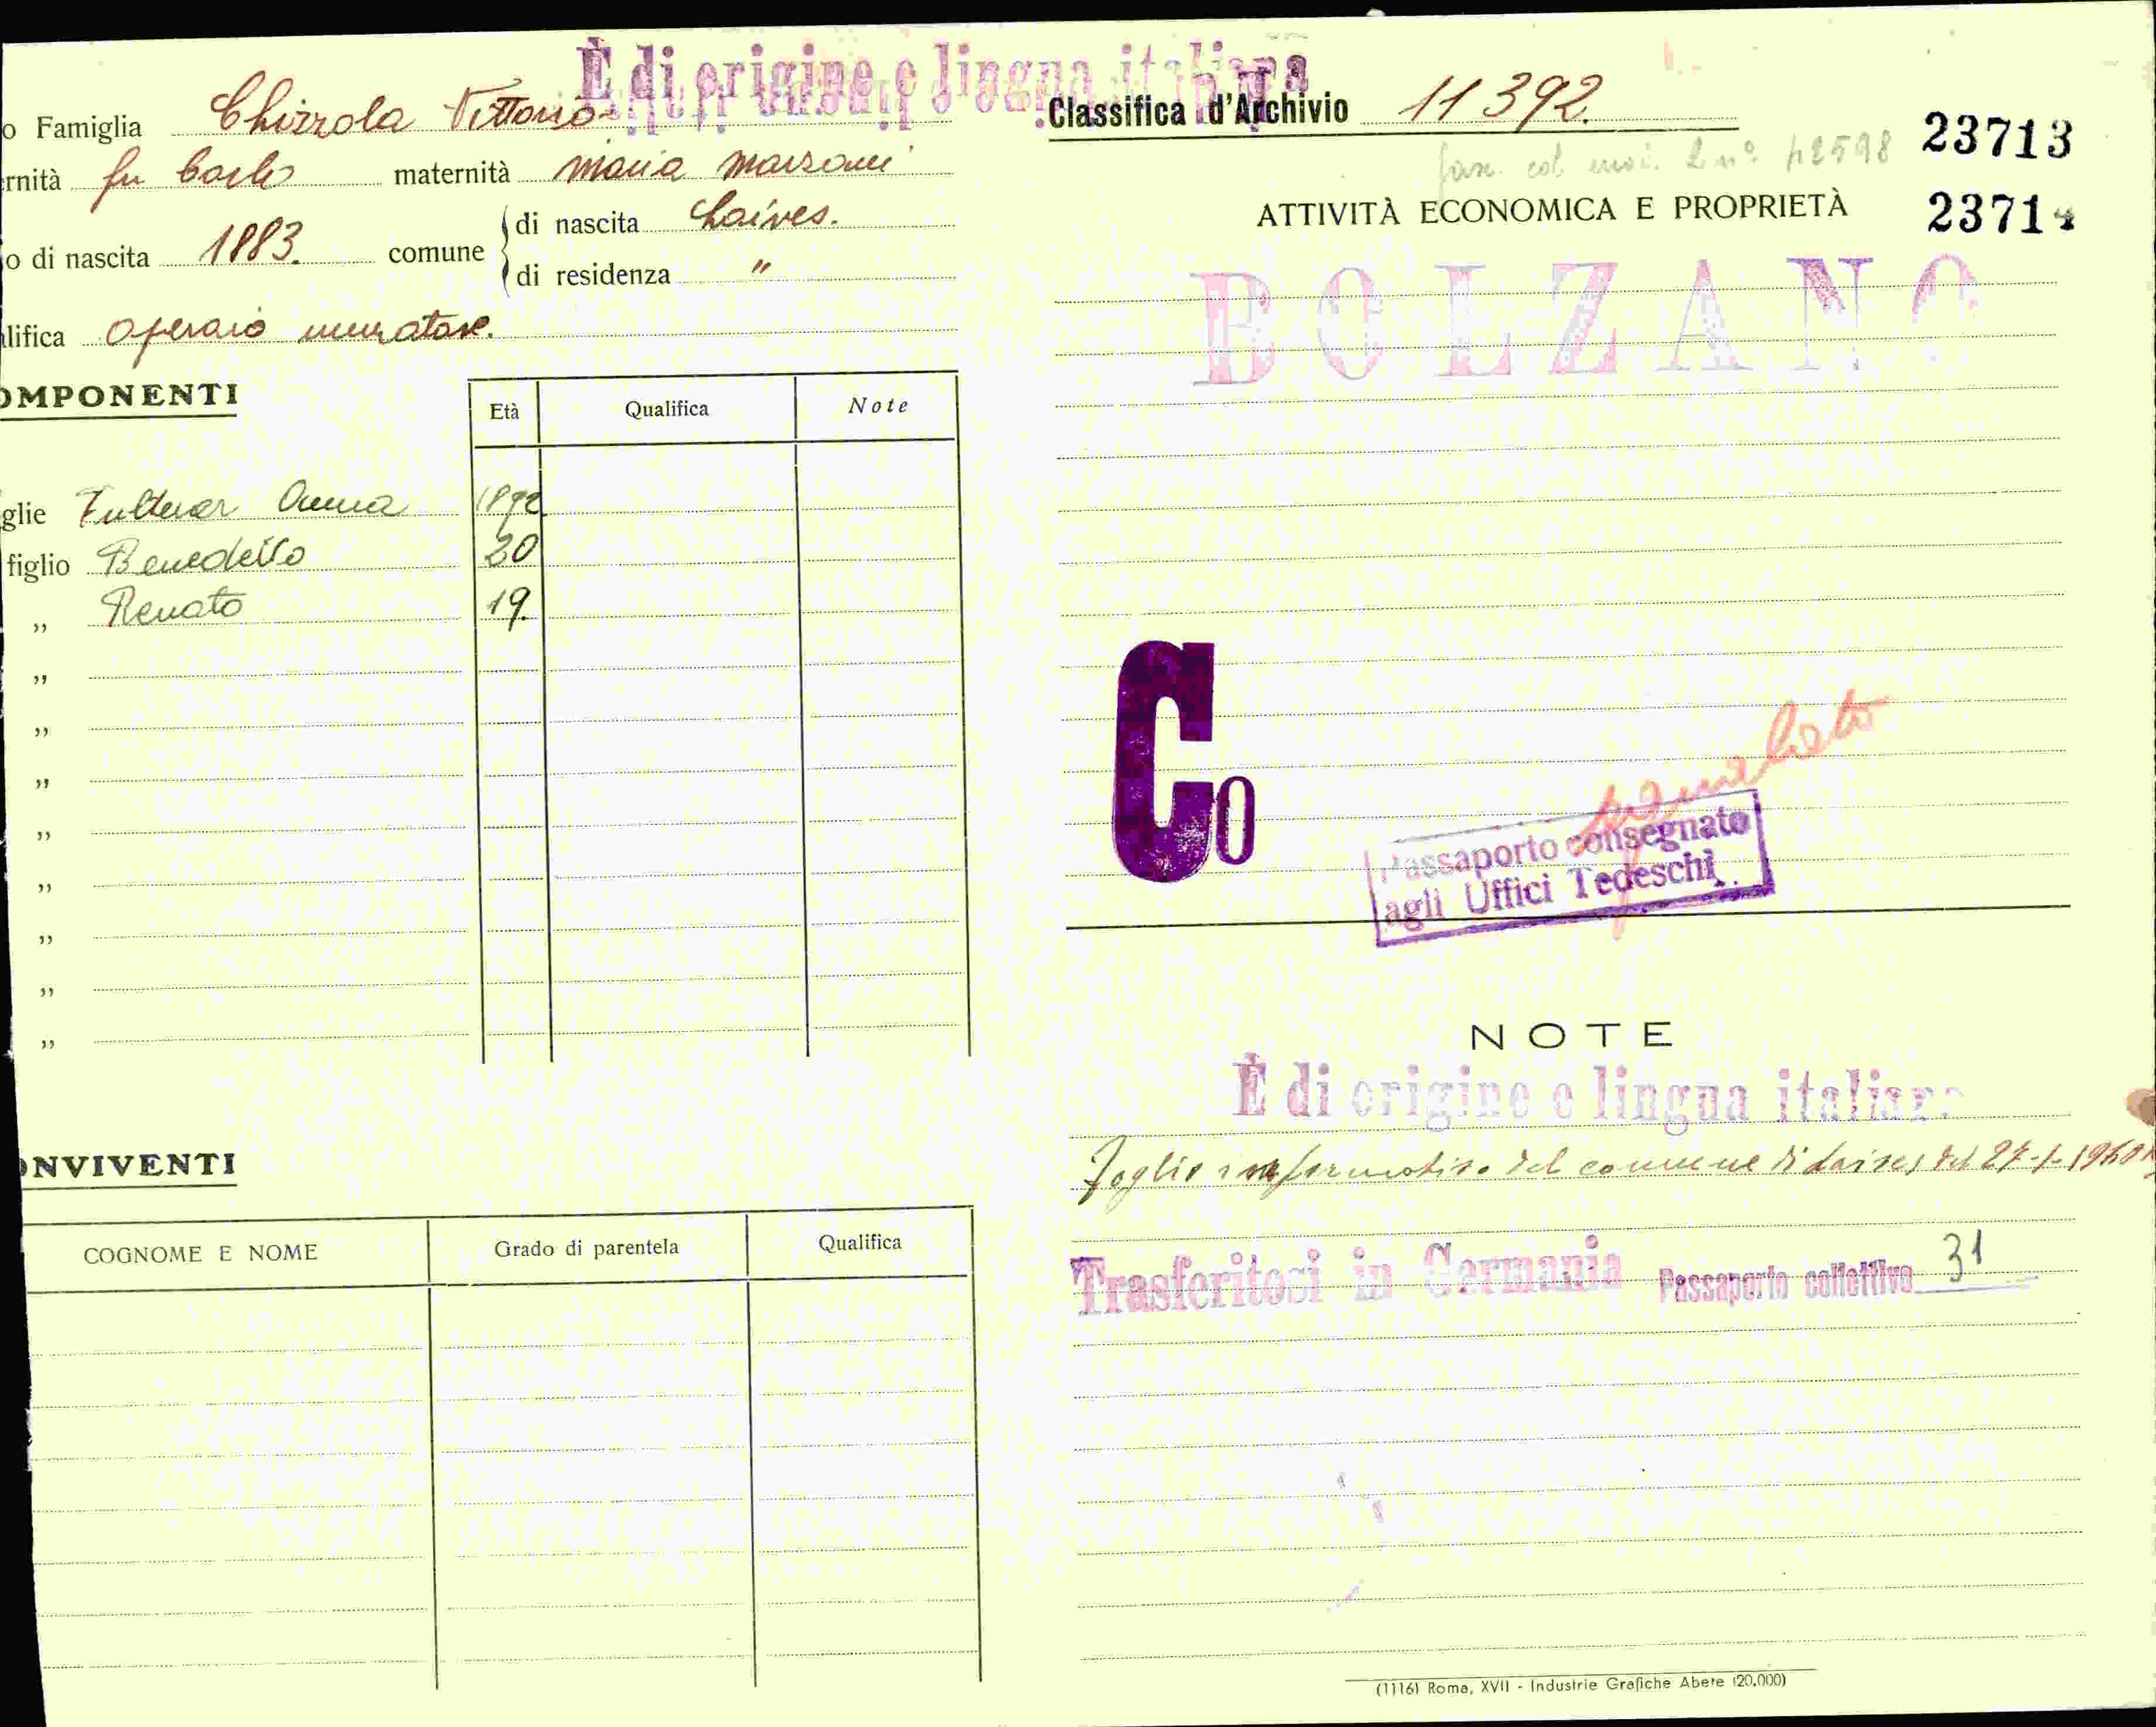 È di origine e lingua italiana
o Famiglia Chizzola Vittorio
rnità fu Carlo maternità Maria Marzoni
o di nascita 1883. comune di nascita Laives.
di residenza "
lifica operaio muratore.
OMPONENTI
Età Qualifica Note
glie Fulterer Anna 1892
figlio Benedetto 20
" Renato 19.
"
"
"
"
"
"
"
"
ONVIVENTI
COGNOME E NOME Grado di parentela Qualifica
Classifica d'Archivio 11392.
23713
23714
ATTIVITÀ ECONOMICA E PROPRIETÀ
BOLZANO
Co
Passaporto consegnato
agli Uffici Tedeschi
NOTE
È di origine e lingua italiana
Foglio informativo del comune di Laives del 27-1-1940
Trasferitosi in Germania Passaporto collettivo 31
(1116) Roma, XVII - Industrie Grafiche Abete (20.000)